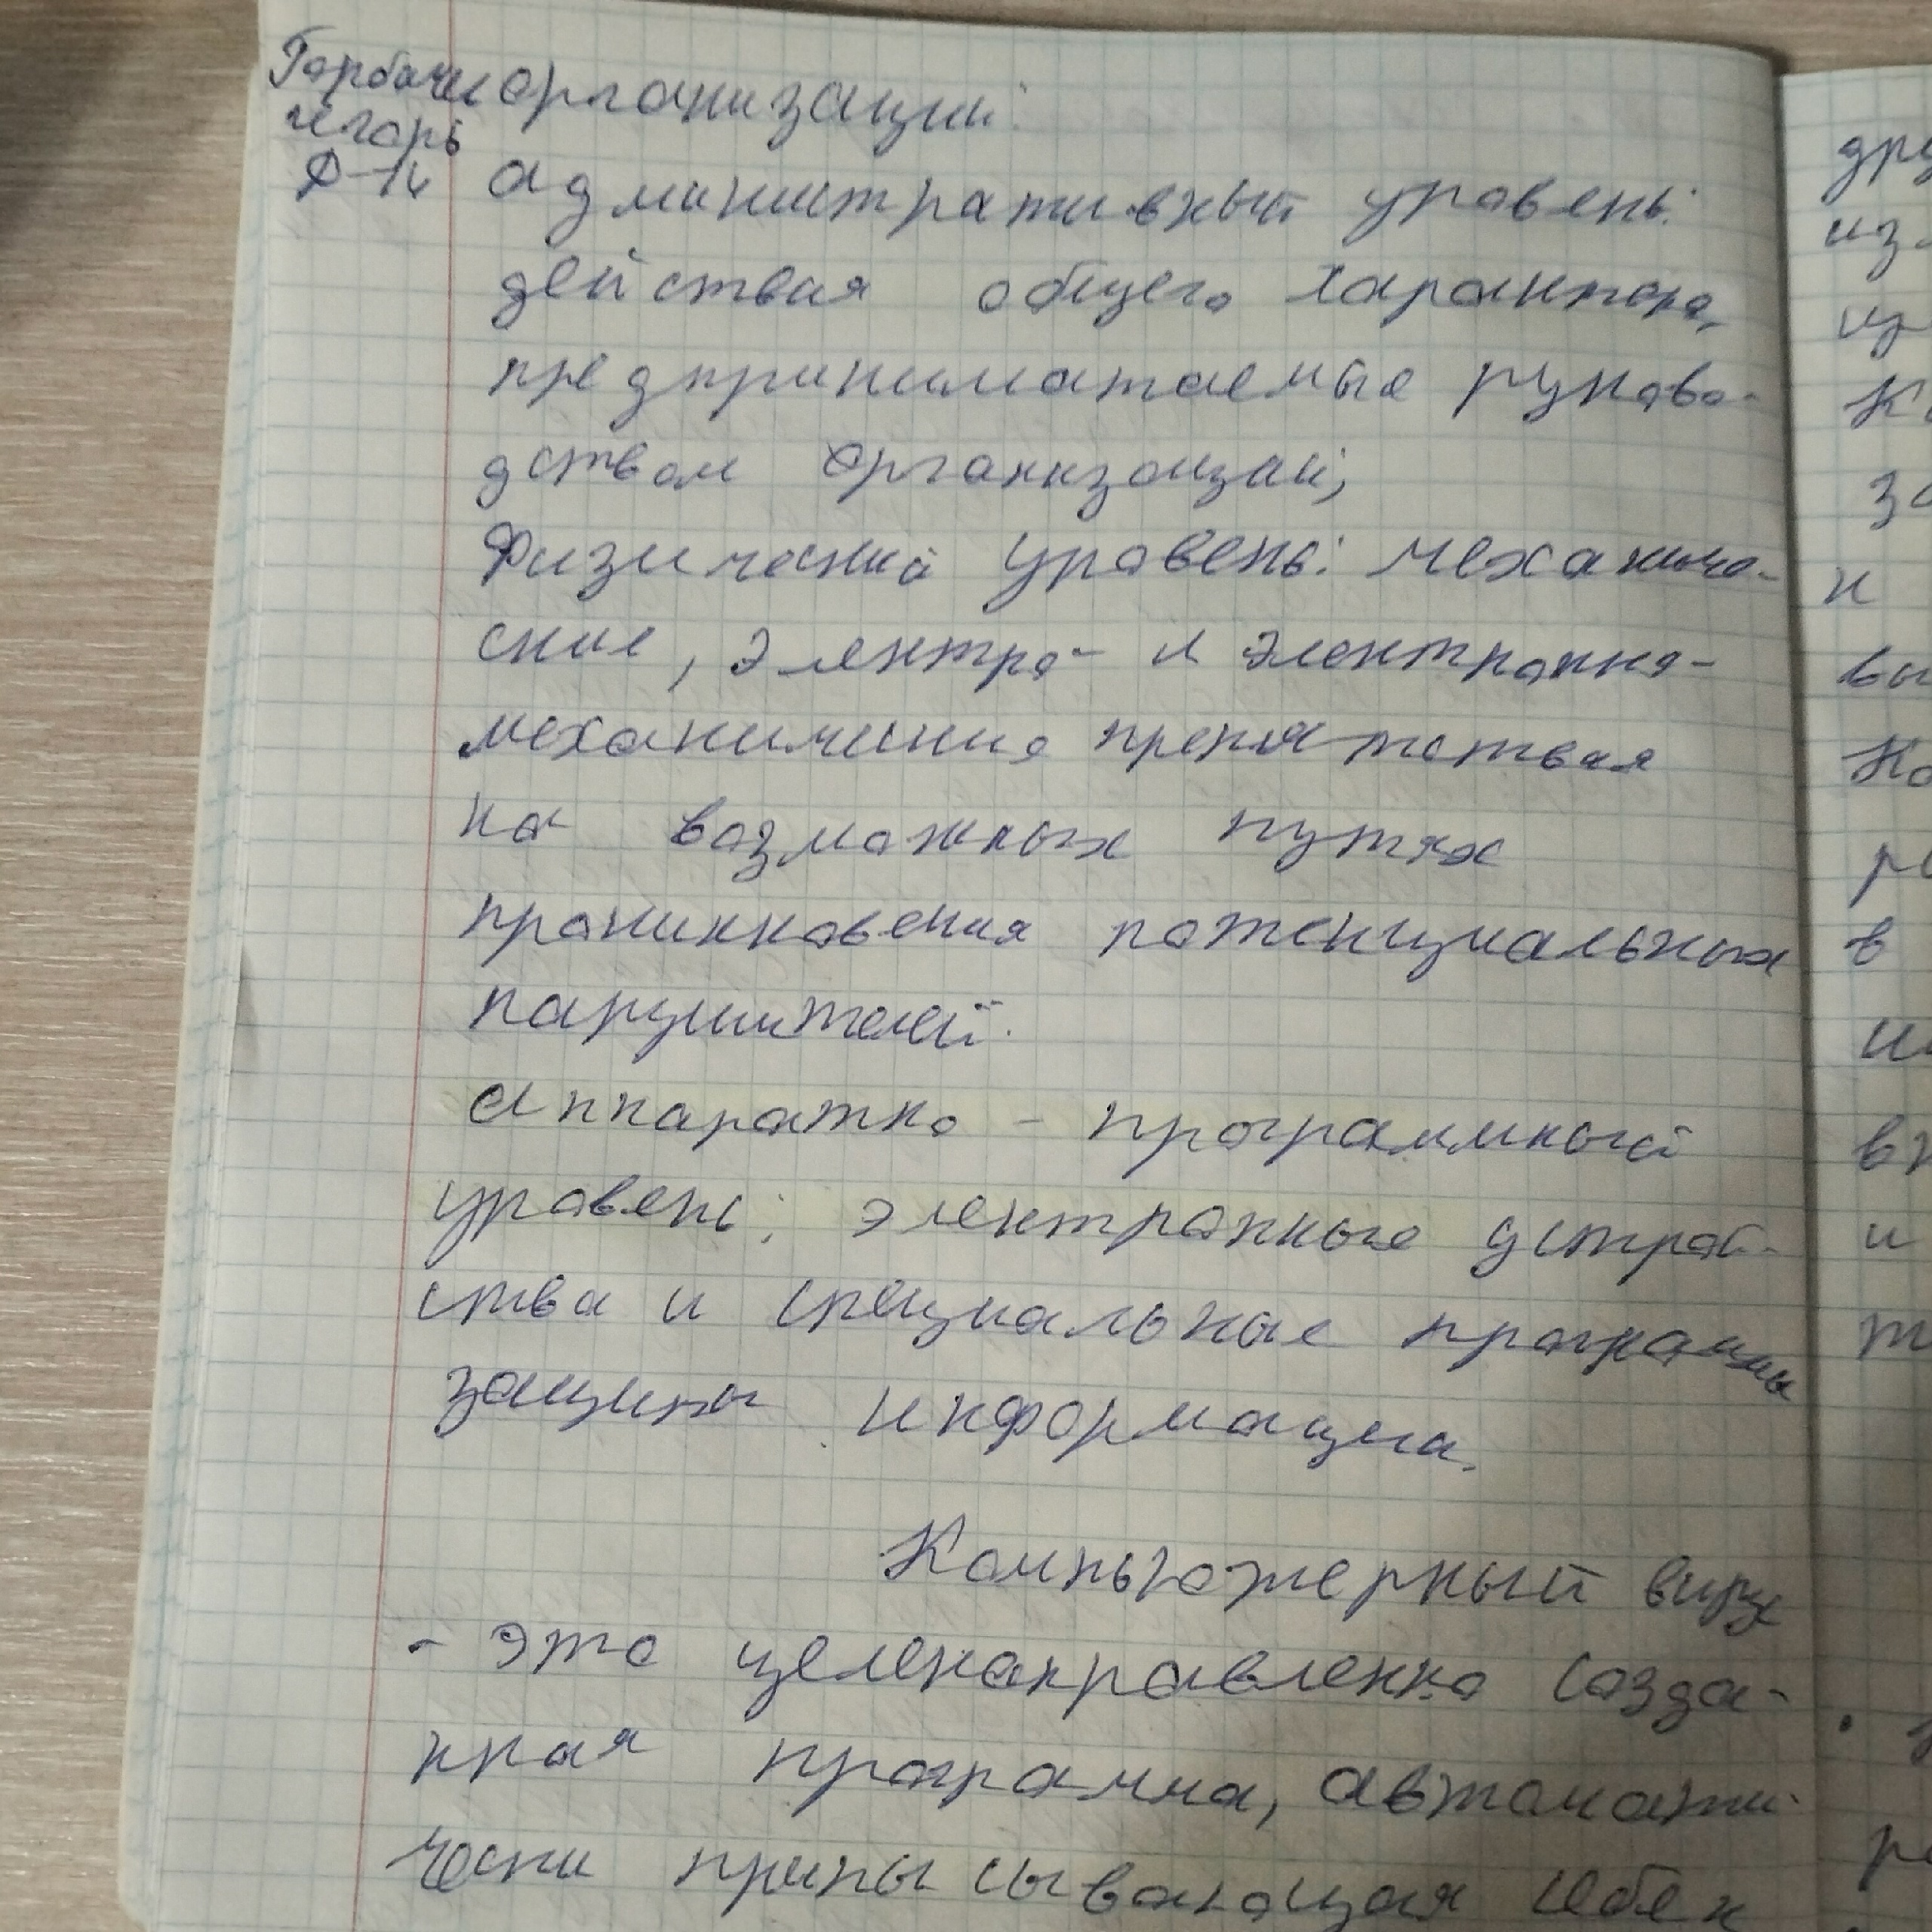 организации:
административный уровень:
действия общего характера,
предприниматаемые руково-
дством организаций;
Физический уровень: механиче-
ские, электро- и электронно-
механические препятствия
на возможных путях
проникновения потенциальных
нарушителей.
Аппаратно - программный
уровень: электронные устрой-
ства и специальные программы
защиты информации.
Компьютерный вирус
- это целенаправленно созда-
нная программа, автомати-
чески приписывающая себя к
дру
из
н
вы
в
и